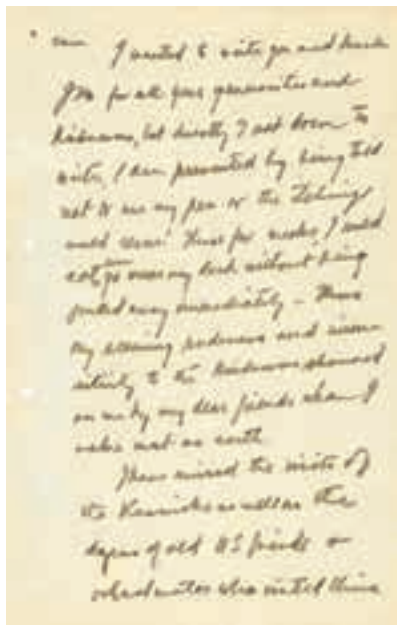 I wanted to write you and thank
you for all your generosities and
kindness, but directly I sat down to
write, I am prevented by being told
not to use my pen or the
would Thus for weeks I could
not go near my desk without being
pulled away immediately - Thus
my seeming rudeness and
to the kindness showered
on me by my dear friends whom I
value most on earth.
I have missed the visits of
the as well as the
of old friends or
who visited